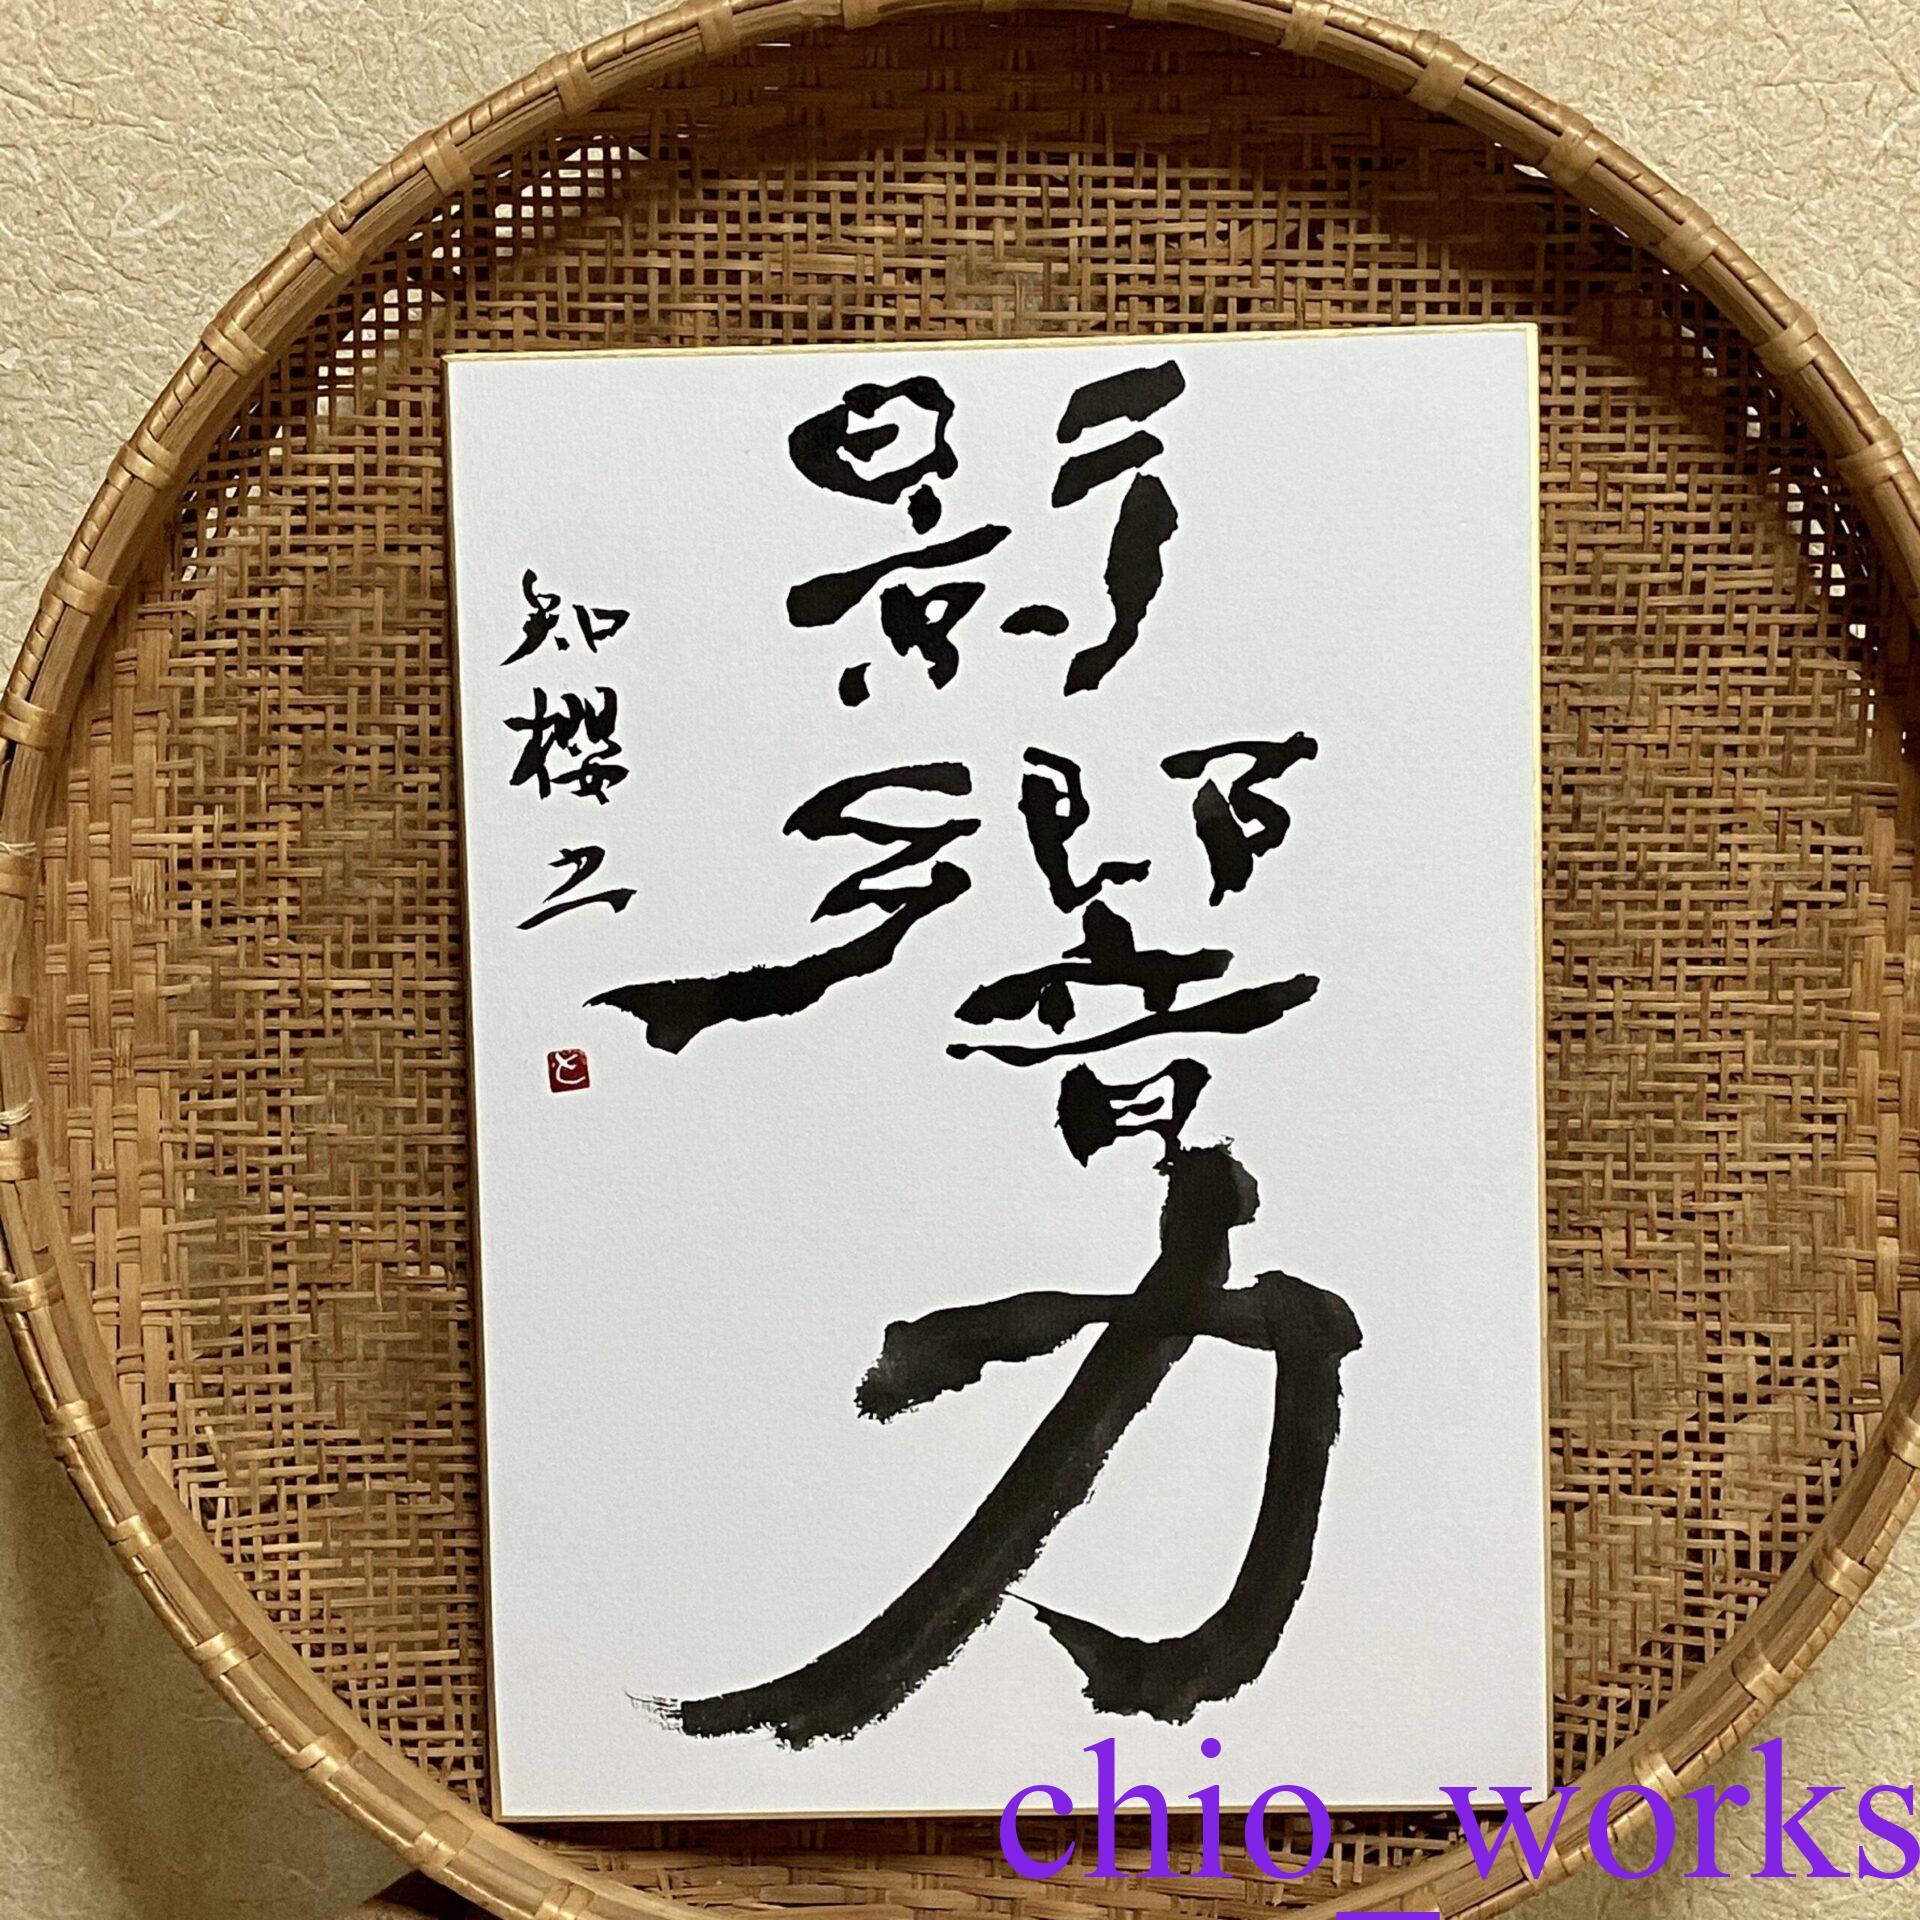 影響力
知櫻
と
chio_works